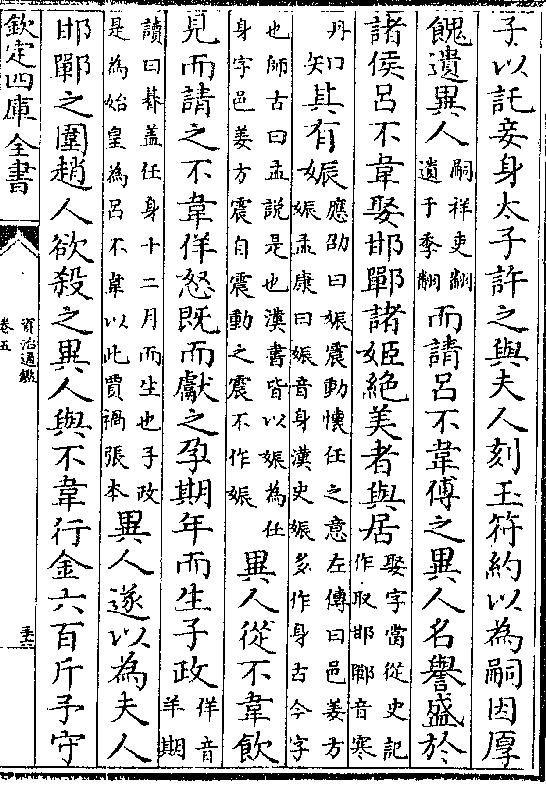 子以託妾身太子許之與夫人刻玉符約以為嗣因厚
餽遺異人嗣祥吏翻遺于季翻而請呂不韋傅之異人名譽盛於
諸侯呂不韋娶邯鄲諸姬絶美者與居娶字當從史記作取邯鄲音寒
丹知其有娠應劭曰娠震動懷任之意左傳曰邑姜方娠孟康曰娠音身漢史娠多作身古今字
也師古曰孟說是也漢書皆以娠為任身字邑姜方震自震動之震不作娠異人從不韋飲
見而請之不韋佯怒既而獻之孕期年而生子政佯音羊期
讀曰朞盖任身十二月而生也子政是為始皇為呂不韋以此賈禍張本異人遂以為夫人
邯鄲之圍趙人欲殺之異人與不韋行金六百斤予守
欽定四庫全書
資治通鑑
卷五